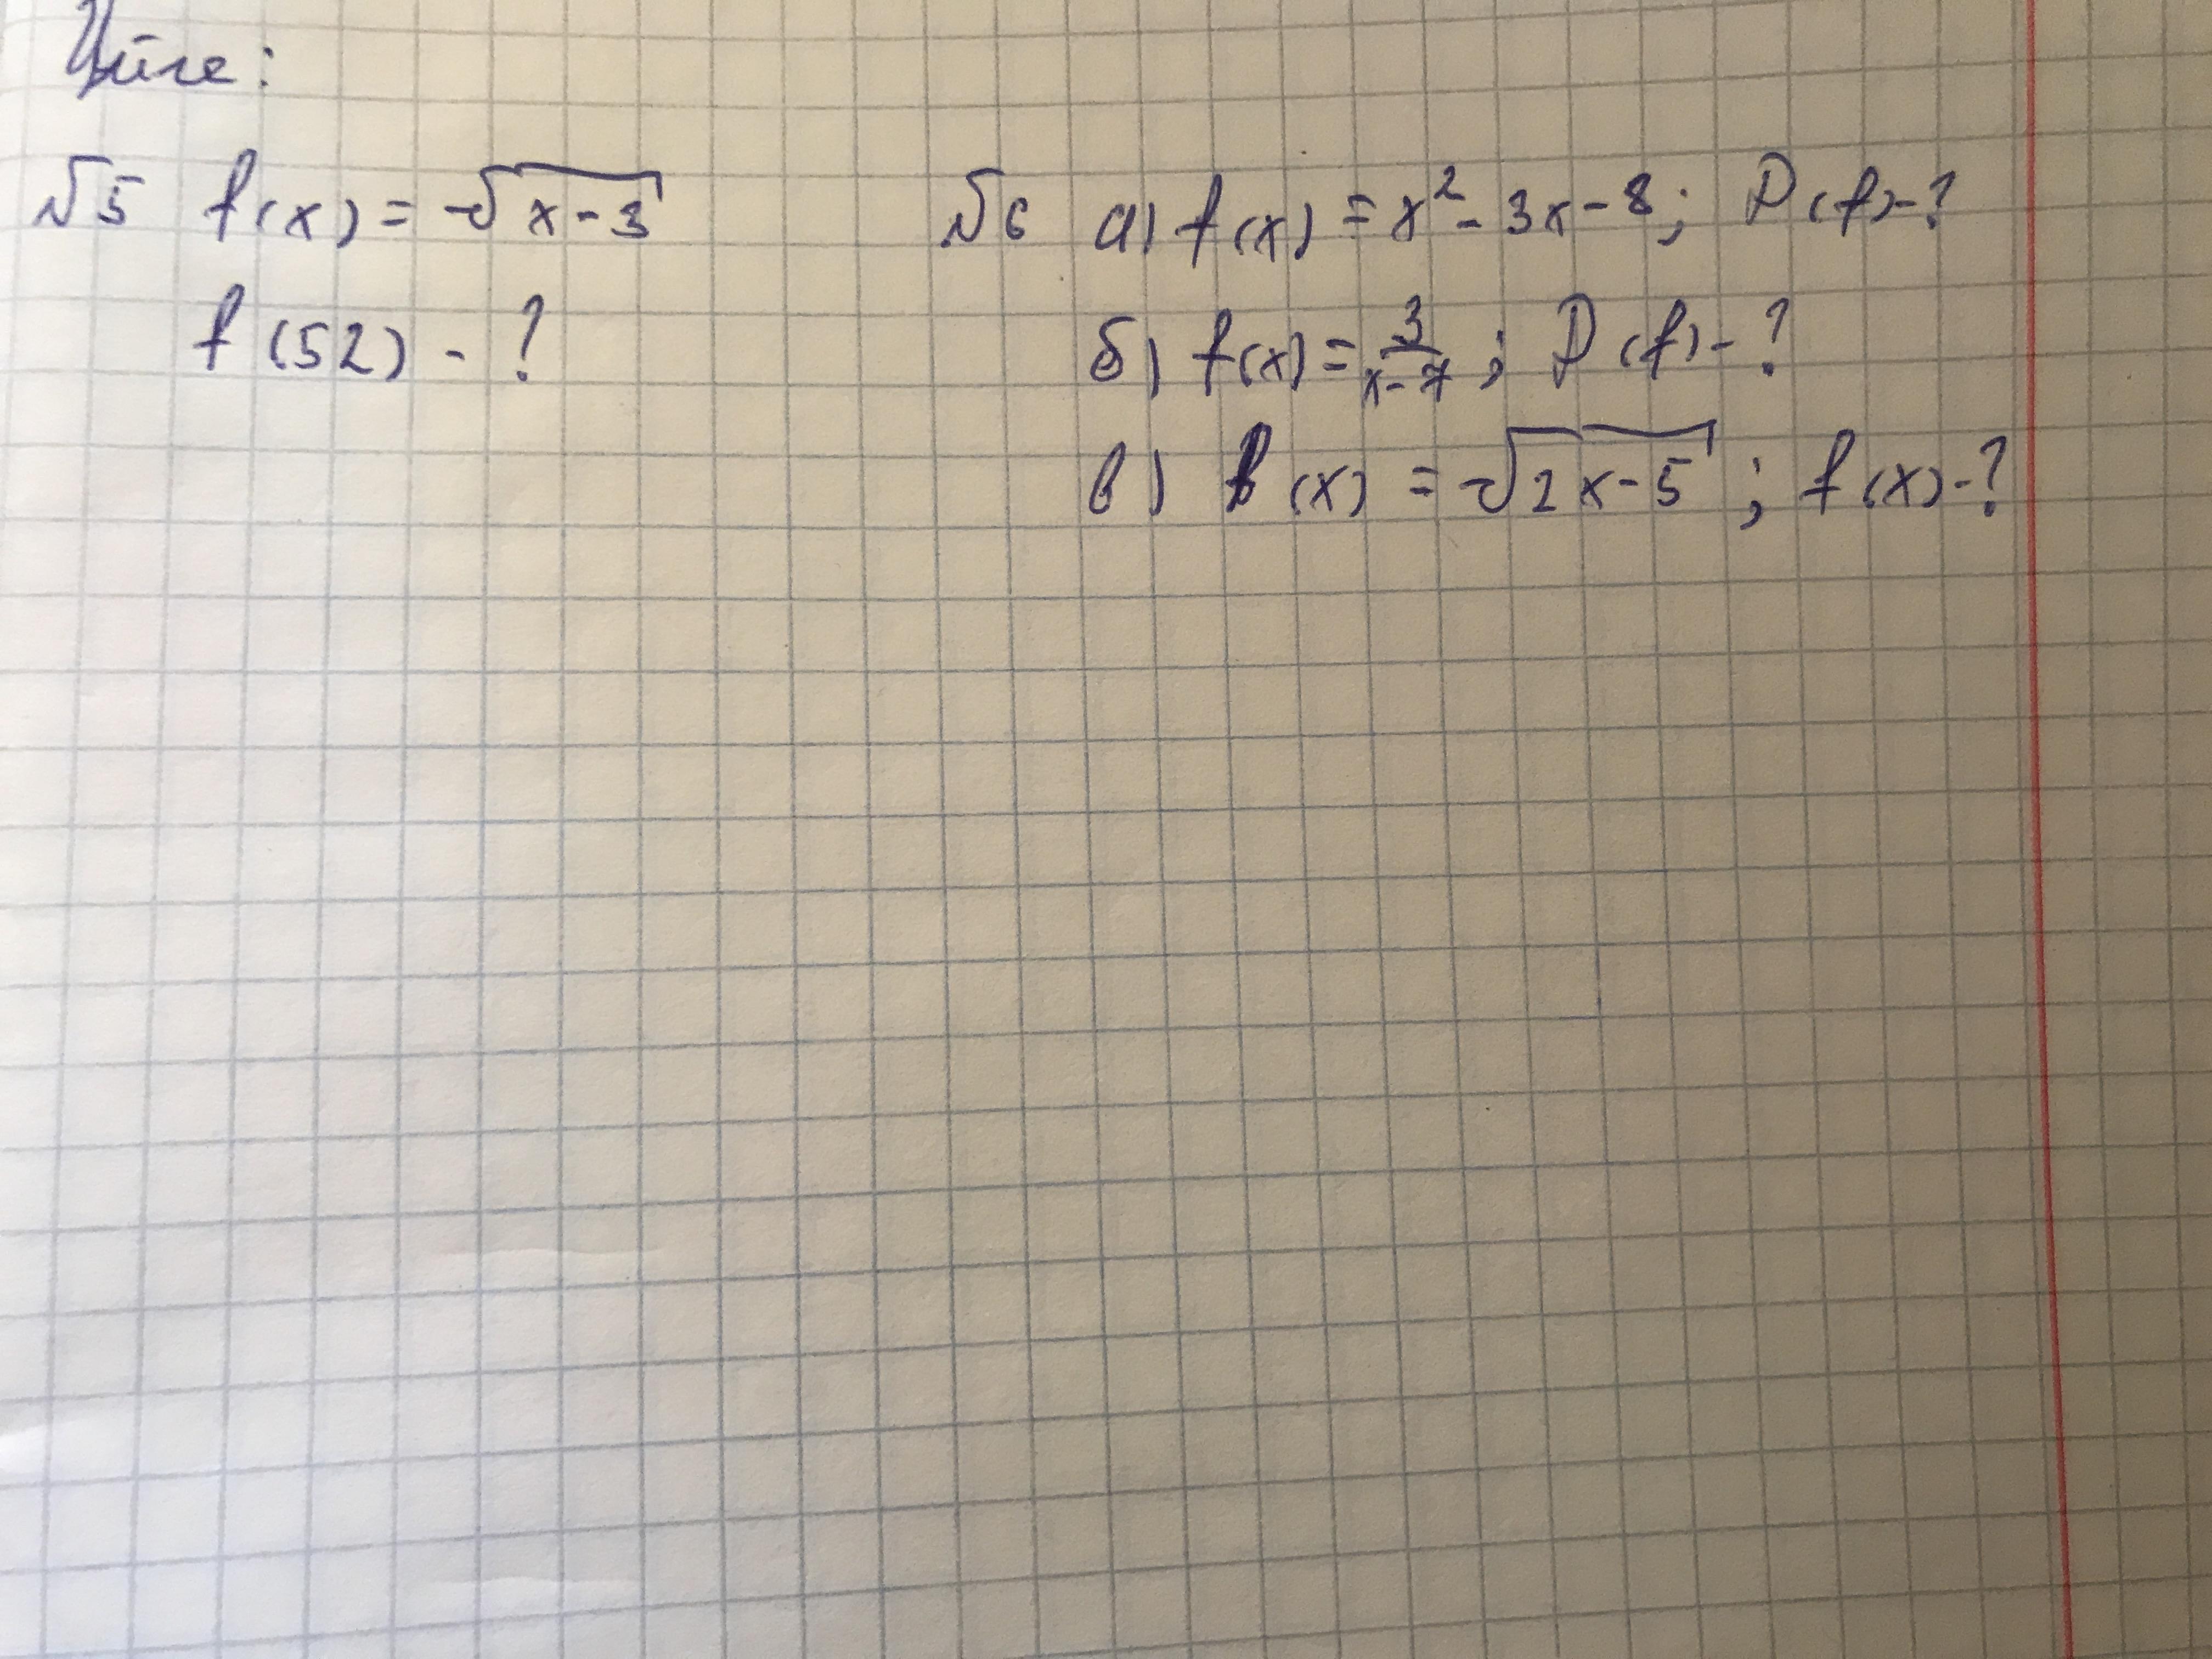 Үйге:
№5 f(x) = √x-3
f(52) - ?
№6 а) f(x) = x² - 3x - 8; D(f) - ?
б) f(x) = 3/x-7; D(f) - ?
в) f(x) = √2x-5; f(x) - ?